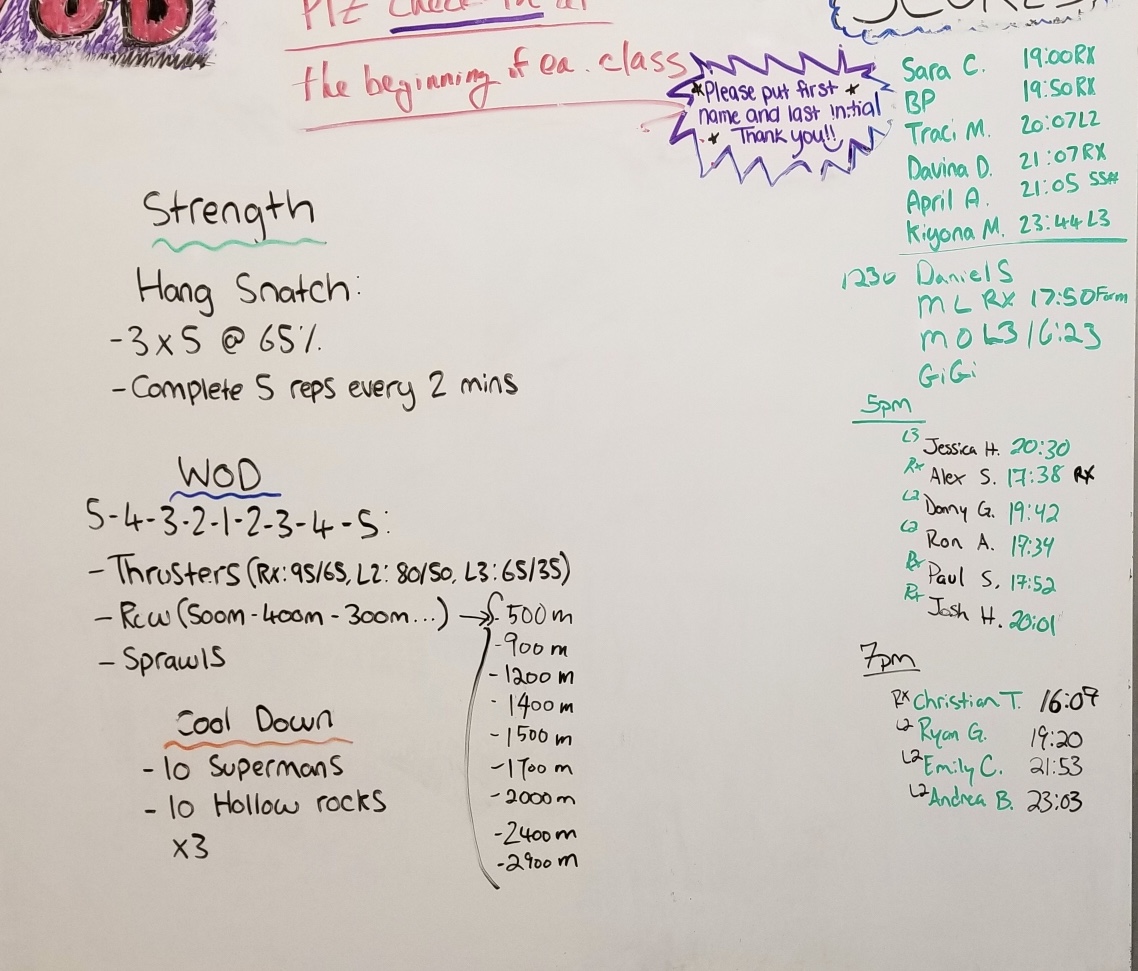 Plz check in at
the beginning of ea. class
*Please put first *
name and last initial
* Thank you!!
Strength
Hang Snatch:
-3x5 @ 65%
-Complete 5 reps every 2 mins
WOD
5-4-3-2-1-2-3-4-5:
- Thrusters (Rx: 95/65, L2: 80/50, L3: 65/35)
- Row (500m-400m-300m...) → 500m
-900m
-1200m
-1400m
-1500m
-1700m
-2000m
-2400m
-2900m
- Sprawls
Cool Down
-10 Supermans
-10 Hollow rocks
x3
SCORES
Sara C. 19:00RX
BP 19:50RX
Traci M. 20:07L2
Davina D. 21:07RX
April A. 21:05 SS#
Kiyona M. 23:44L3
1230 Daniel S
M L RX 17:50Form
M O L3 16:23
GiGi
5pm
L3 Jessica H. 20:30
Rx Alex S. 17:38 RX
L2 Donny G. 19:42
L2 Ron A. 17:34
Rx Paul S. 17:52
Rx Josh H. 20:01
7pm
RX Christian T. 16:07
L2 Ryan G. 19:20
L2 Emily C. 21:53
L2 Andrea B. 23:03